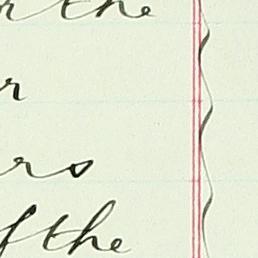 the
r
rs
of the